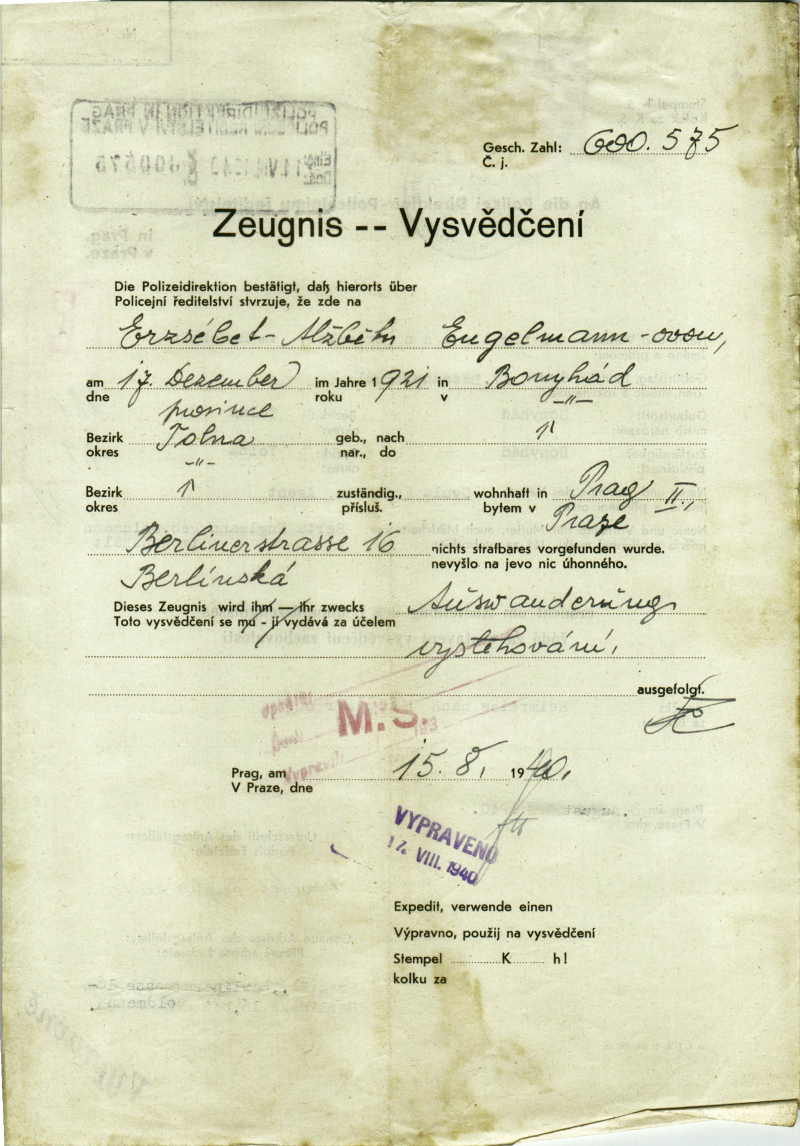 Gesch. Zahl: 600.575
Č. j.
Zeugnis -- Vysvědčení
Die Polizeidirektion bestätigt, daß hierorts über
Policejní ředitelství stvrzuje, že zde na
Erzsébet - Alžbětu Engelmann-ovou,
am 17. Dezember im Jahre 1921 in Bonyhád
dne roku v -"-
province
Bezirk Tolna geb., nach
okres -"- nar., do
Bezirk zuständig., wohnhaft in Prag II.,
okres přísluš. bytem v Praze
Berlinerstrasse 16 nichts strafbares vorgefunden wurde.
Berlínská nevyšlo na jevo nic úhonného.
Dieses Zeugnis wird ihm — ihr zwecks Auswanderung
Toto vysvědčení se mu - jí vydává za účelem
vystěhování,
ausgefolgt.
M.S.
Prag, am 15. 8. 1940.
V Praze, dne
VYPRAVENO
17. VIII. 1940
Expedit, verwende einen
Výpravno, použij na vysvědčení
Stempel K h!
kolku za